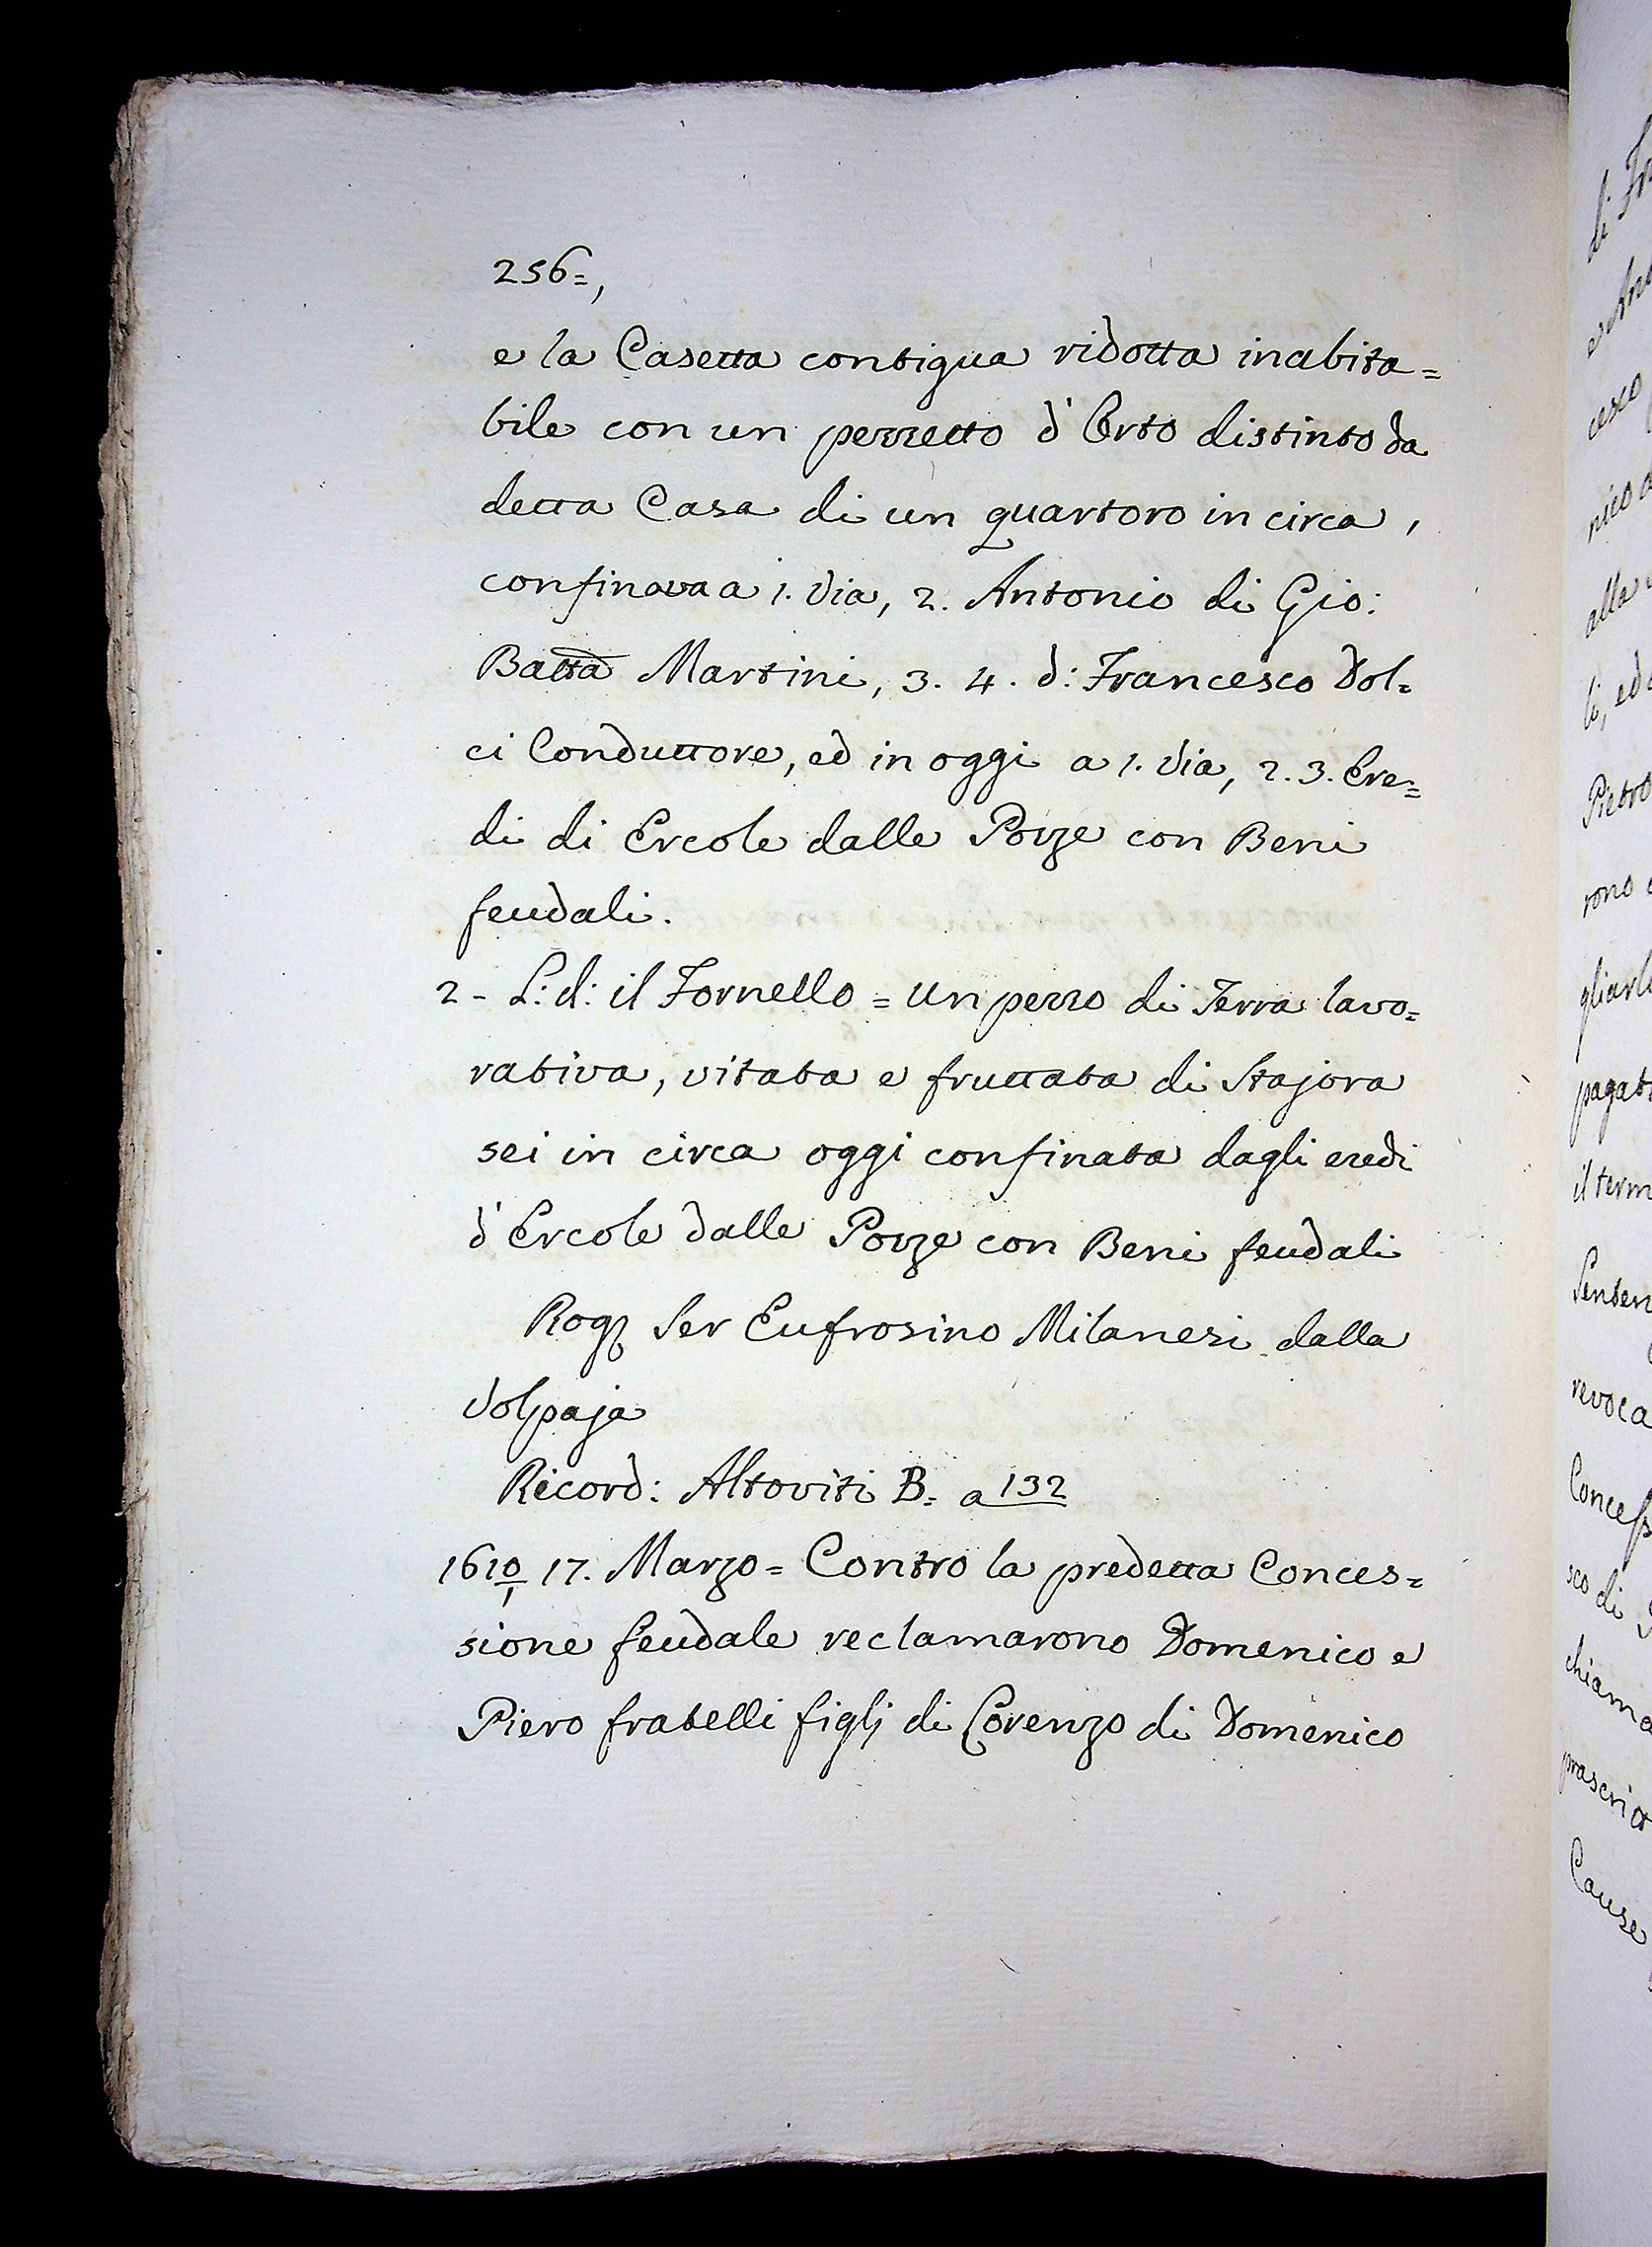 256=,
e la Casetta contigua ridotta inabita=
bile con un pezzetto d'Orto distinto da
detta Casa di un quartoro in circa,
confinava a 1. Via, 2. Antonio di Gio:
Batta Martini, 3. 4. d: Francesco Dol=
ci Conduttore, ed in oggi a 1. Via, 2. 3. Ere=
di di Ercole dalle Pozze con Beni
feudali.
2 - L: d: il Fornello = Un pezzo di Terra lavo=
rativa, vitata e fruttata di Stajora
sei in circa oggi confinata dagli eredi
d'Ercole dalle Pozze con Beni feudali
Rog. Ser Eufrosino Milanesi dalla
Volpaja
Ricord: Altoviti B. a 132
1610/1 17. Marzo = Contro la predetta Conces=
sione feudale reclamarono Domenico e
Piero fratelli figlj di Lorenzo di Domenico
di
cesco
nico
alla
li, ed
Pietro
rono
il
revoca
sco di
Cause